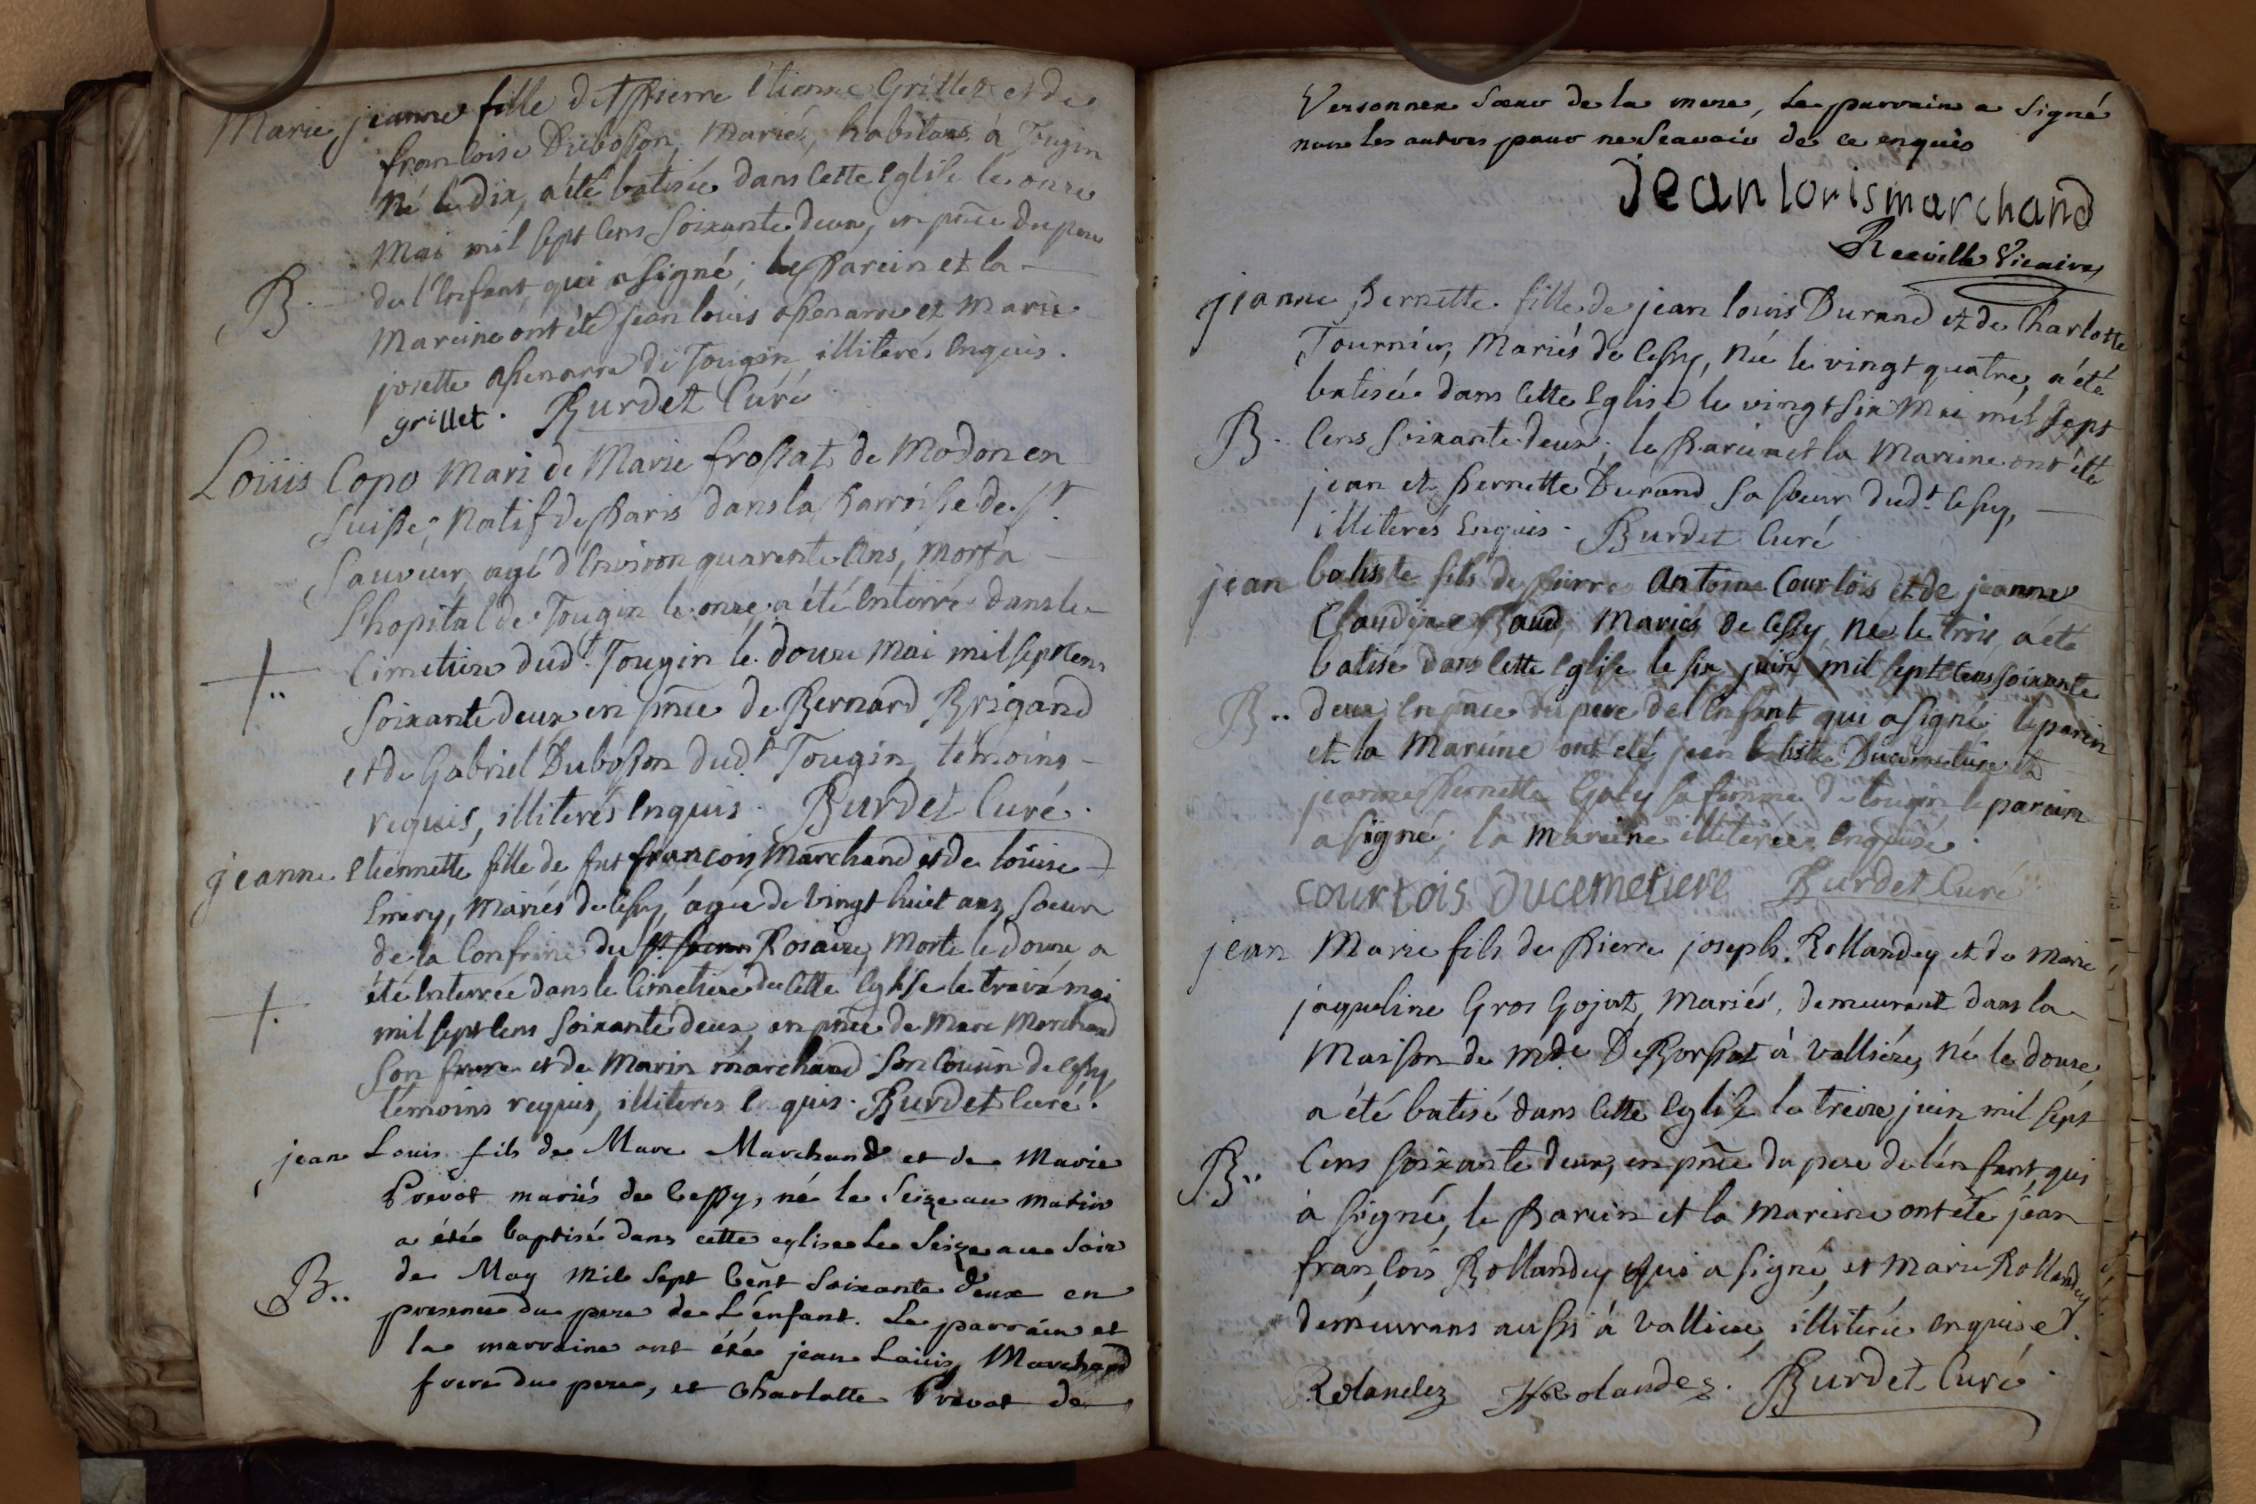 Marie jeanne fille de Pierre Etienne Grillet et de
francoise Duboson, Mariés, habitans à Tougin
Né le dix, a été batisée dans cette Eglise le onze
Mai mil sept cens soixante deux, en pñce du pere
B. de l'Enfant qui a signé; le Parein et la
Mareine ont été jean louis et Marie
josette de Tougin, illiterés Enquis.
grillet. Burdet Curé
Loüis Copo Mari de Marie frossat de Modon en
Suisse, Natif de Paris dans la Parroisse de St.
Sauveur, agé d'Environ quarente Ans, Mort à
l'hopital de Tougin le onze, a été Enterré dans le
+.. Cimetiere dudt. Tougin le douze Mai mil sept cens
soixante deux en pñce de Bernard Brigand
et de Gabriel Duboson dudt. Tougin, témoins
requis, illiterés Enquis. Burdet Curé.
jeanne Etiennette fille de fut françois Marchand et de loüise
Emery, Mariés de Cessy, agée de vingt huit ans, soeur
de la Confrerie du Rosaire, Morte le douze a
été Enterrée dans le Cimetiere de Cette Eglise le treize mai
+. mil sept cens soixante deux, en pñce de Marc Marchand
son frere et de Marin marchand son Cousin de Cessy,
témoins requis, illiteres Enquis. Burdet Curé.
jean Louis fils de Marc Marchand et de Marie
Prevot mariés de Cessy, né le Seize au matin
a été baptisé dans cette eglise Le Seize au Soir
B.. de May Mil Sept Cent Soixante deux en
presence du pere de L'enfant. Le parrain et
la marraine ont été jean Louis Marchand
frere du pere, et Charlotte Prevot de
Versonnex Soeur de la mere, Le parrain a Signé
non les autres pour ne Scavoir de ce enquis
jean louis marchand
Reville Vicaire
jeanne Pernette fille de jean louis Durand et de Charlotte
Tournier, Mariés de Cessy, Née le vingt quatre, a été
batisée dans Cette Eglise le vingt six Mai mil sept
B. Cens soixante deux; le Parein et la Mareine ont été
jean et Pernette Durand sa soeur dudt. Cessy,
illiterés Enquis. Burdet Curé
jean batiste fils de pierre Antoine Courtois et de jeanne
Claudine Mariés de Cessy, né le trois, a été
batisé dans Cette Eglise le six juin mil sept cens soixante
B.. deux, en pñce du pere de l'Enfant qui a signé; le parin
et la Mareine ont été jean batiste Ducimetiere et
jeanne Pernette Goly sa femme de tougin, le parein
a signé; la mareine illiterée Enquise.
courtois Ducemetiere Burdet Curé
jean Marie fils de Pierre joseph Rollandey et de Marie
jaqueline Gros Gojat, Mariés, demeurant dans la
Maison de Mde. De Borssat à Valliére, né le douze,
a été batisé dans Cette Eglise le treize juin mil sept
B.. Cens soixante deux, en pñce du pere de l'enfant, qui
à signé, le Parein et la mareine ont été jean
francois Rollandey qui a signé, et Marie Rollandey
demeurans aussi à Valliere, illiterée enquise.
Rolandez Rolandez. Burdet Curé